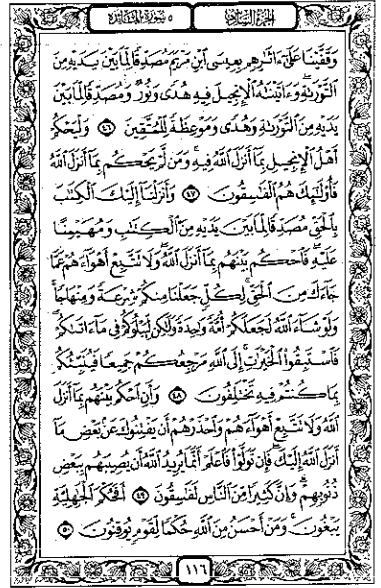 الجزء السادس
٥ سورة المائدة
وَقَفَّيْنَا عَلَىٰٓ ءَاثَٰرِهِم بِعِيسَى ٱبْنِ مَرْيَمَ مُصَدِّقًا لِّمَا بَيْنَ يَدَيْهِ مِنَ
ٱلتَّوْرَىٰةِ ۖ وَءَاتَيْنَٰهُ ٱلْإِنجِيلَ فِيهِ هُدًى وَنُورٌ وَمُصَدِّقًا لِّمَا بَيْنَ
يَدَيْهِ مِنَ ٱلتَّوْرَىٰةِ وَهُدًى وَمَوْعِظَةً لِّلْمُتَّقِينَ ٤٦ وَلْيَحْكُمْ
أَهْلُ ٱلْإِنجِيلِ بِمَآ أَنزَلَ ٱللَّهُ فِيهِ ۚ وَمَن لَّمْ يَحْكُم بِمَآ أَنزَلَ ٱللَّهُ
فَأُو۟لَٰٓئِكَ هُمُ ٱلْفَٰسِقُونَ ٤٧ وَأَنزَلْنَآ إِلَيْكَ ٱلْكِتَٰبَ
بِٱلْحَقِّ مُصَدِّقًا لِّمَا بَيْنَ يَدَيْهِ مِنَ ٱلْكِتَٰبِ وَمُهَيْمِنًا
عَلَيْهِ ۖ فَٱحْكُم بَيْنَهُم بِمَآ أَنزَلَ ٱللَّهُ ۖ وَلَا تَتَّبِعْ أَهْوَآءَهُمْ عَمَّا
جَآءَكَ مِنَ ٱلْحَقِّ ۚ لِكُلٍّ جَعَلْنَا مِنكُمْ شِرْعَةً وَمِنْهَاجًا ۚ
وَلَوْ شَآءَ ٱللَّهُ لَجَعَلَكُمْ أُمَّةً وَٰحِدَةً وَلَٰكِن لِّيَبْلُوَكُمْ فِى مَآ ءَاتَىٰكُمْ ۖ
فَٱسْتَبِقُوا۟ ٱلْخَيْرَٰتِ ۚ إِلَى ٱللَّهِ مَرْجِعُكُمْ جَمِيعًا فَيُنَبِّئُكُم
بِمَا كُنتُمْ فِيهِ تَخْتَلِفُونَ ٤٨ وَأَنِ ٱحْكُم بَيْنَهُم بِمَآ أَنزَلَ
ٱللَّهُ وَلَا تَتَّبِعْ أَهْوَآءَهُمْ وَٱحْذَرْهُمْ أَن يَفْتِنُوكَ عَنۢ بَعْضِ مَآ
أَنزَلَ ٱللَّهُ إِلَيْكَ ۖ فَإِن تَوَلَّوْا۟ فَٱعْلَمْ أَنَّمَا يُرِيدُ ٱللَّهُ أَن يُصِيبَهُم بِبَعْضِ
ذُنُوبِهِمْ ۗ وَإِنَّ كَثِيرًا مِّنَ ٱلنَّاسِ لَفَٰسِقُونَ ٤٩ أَفَحُكْمَ ٱلْجَٰهِلِيَّةِ
يَبْغُونَ ۚ وَمَنْ أَحْسَنُ مِنَ ٱللَّهِ حُكْمًا لِّقَوْمٍ يُوقِنُونَ ٥٠
١١٦